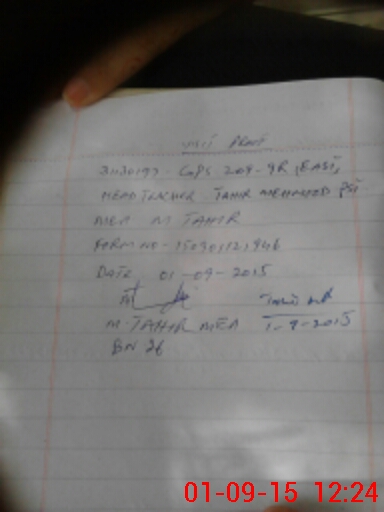 VISIT PROOF
31130193 - GPS 209-9R (EAST)
HEAD TEACHER TAHIR MEHMOOD PST
MEA M TAHIR
FORM NO - 15090121946
DATE 01-09-2015
M. TAHIR MEA 1-9-2015
BN 26
01-09-15 12:24